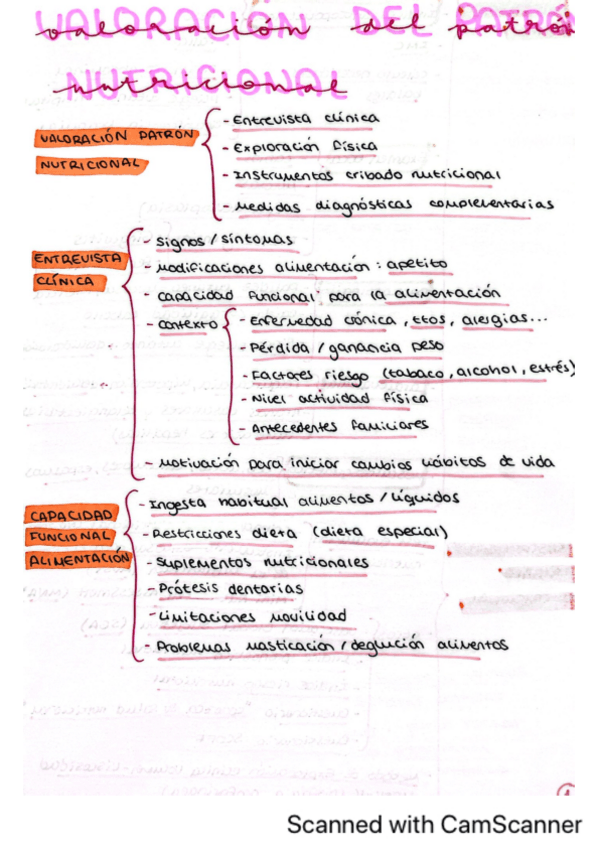 VALORACIÓN DEL PATRÓN
NUTRICIONAL
valoración del patrón
nutricional
VALORACIÓN PATRÓN
NUTRICIONAL
- Entrevista clínica
- Exploración física
- Instrumentos cribado nutricional
- Medidas diagnósticas complementarias
ENTREVISTA
CLÍNICA
- Signos / síntomas
- Modificaciones alimentación : apetito
- Capacidad funcional para la alimentación
- Contexto
- Enfermedad crónica , ttos, alergias...
- Pérdida / ganancia peso
- Factores riesgo (tabaco, alcohol, estrés)
- Nivel actividad física
- Antecedentes familiares
- Motivación para iniciar cambios hábitos de vida
CAPACIDAD
FUNCIONAL
ALIMENTACIÓN
- Ingesta habitual alimentos / líquidos
- Restricciones dieta (dieta especial)
- Suplementos nutricionales
- Prótesis dentarias
- Limitaciones movilidad
- Problemas masticación / deglución alimentos
Scanned with CamScanner